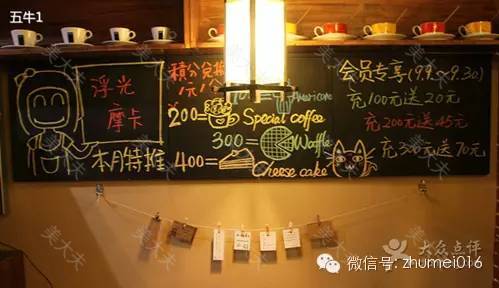 五牛1
浮光
摩卡
本月特推
積分兑換
1元/1
Americano
200=
Special coffee
300=
Waffle
400=
Cheese cake
会员专享(9.9~9.30)
充100元送20元
充200元送45元
充300元送70元
美大大
大众点评
微信号: zhumei016